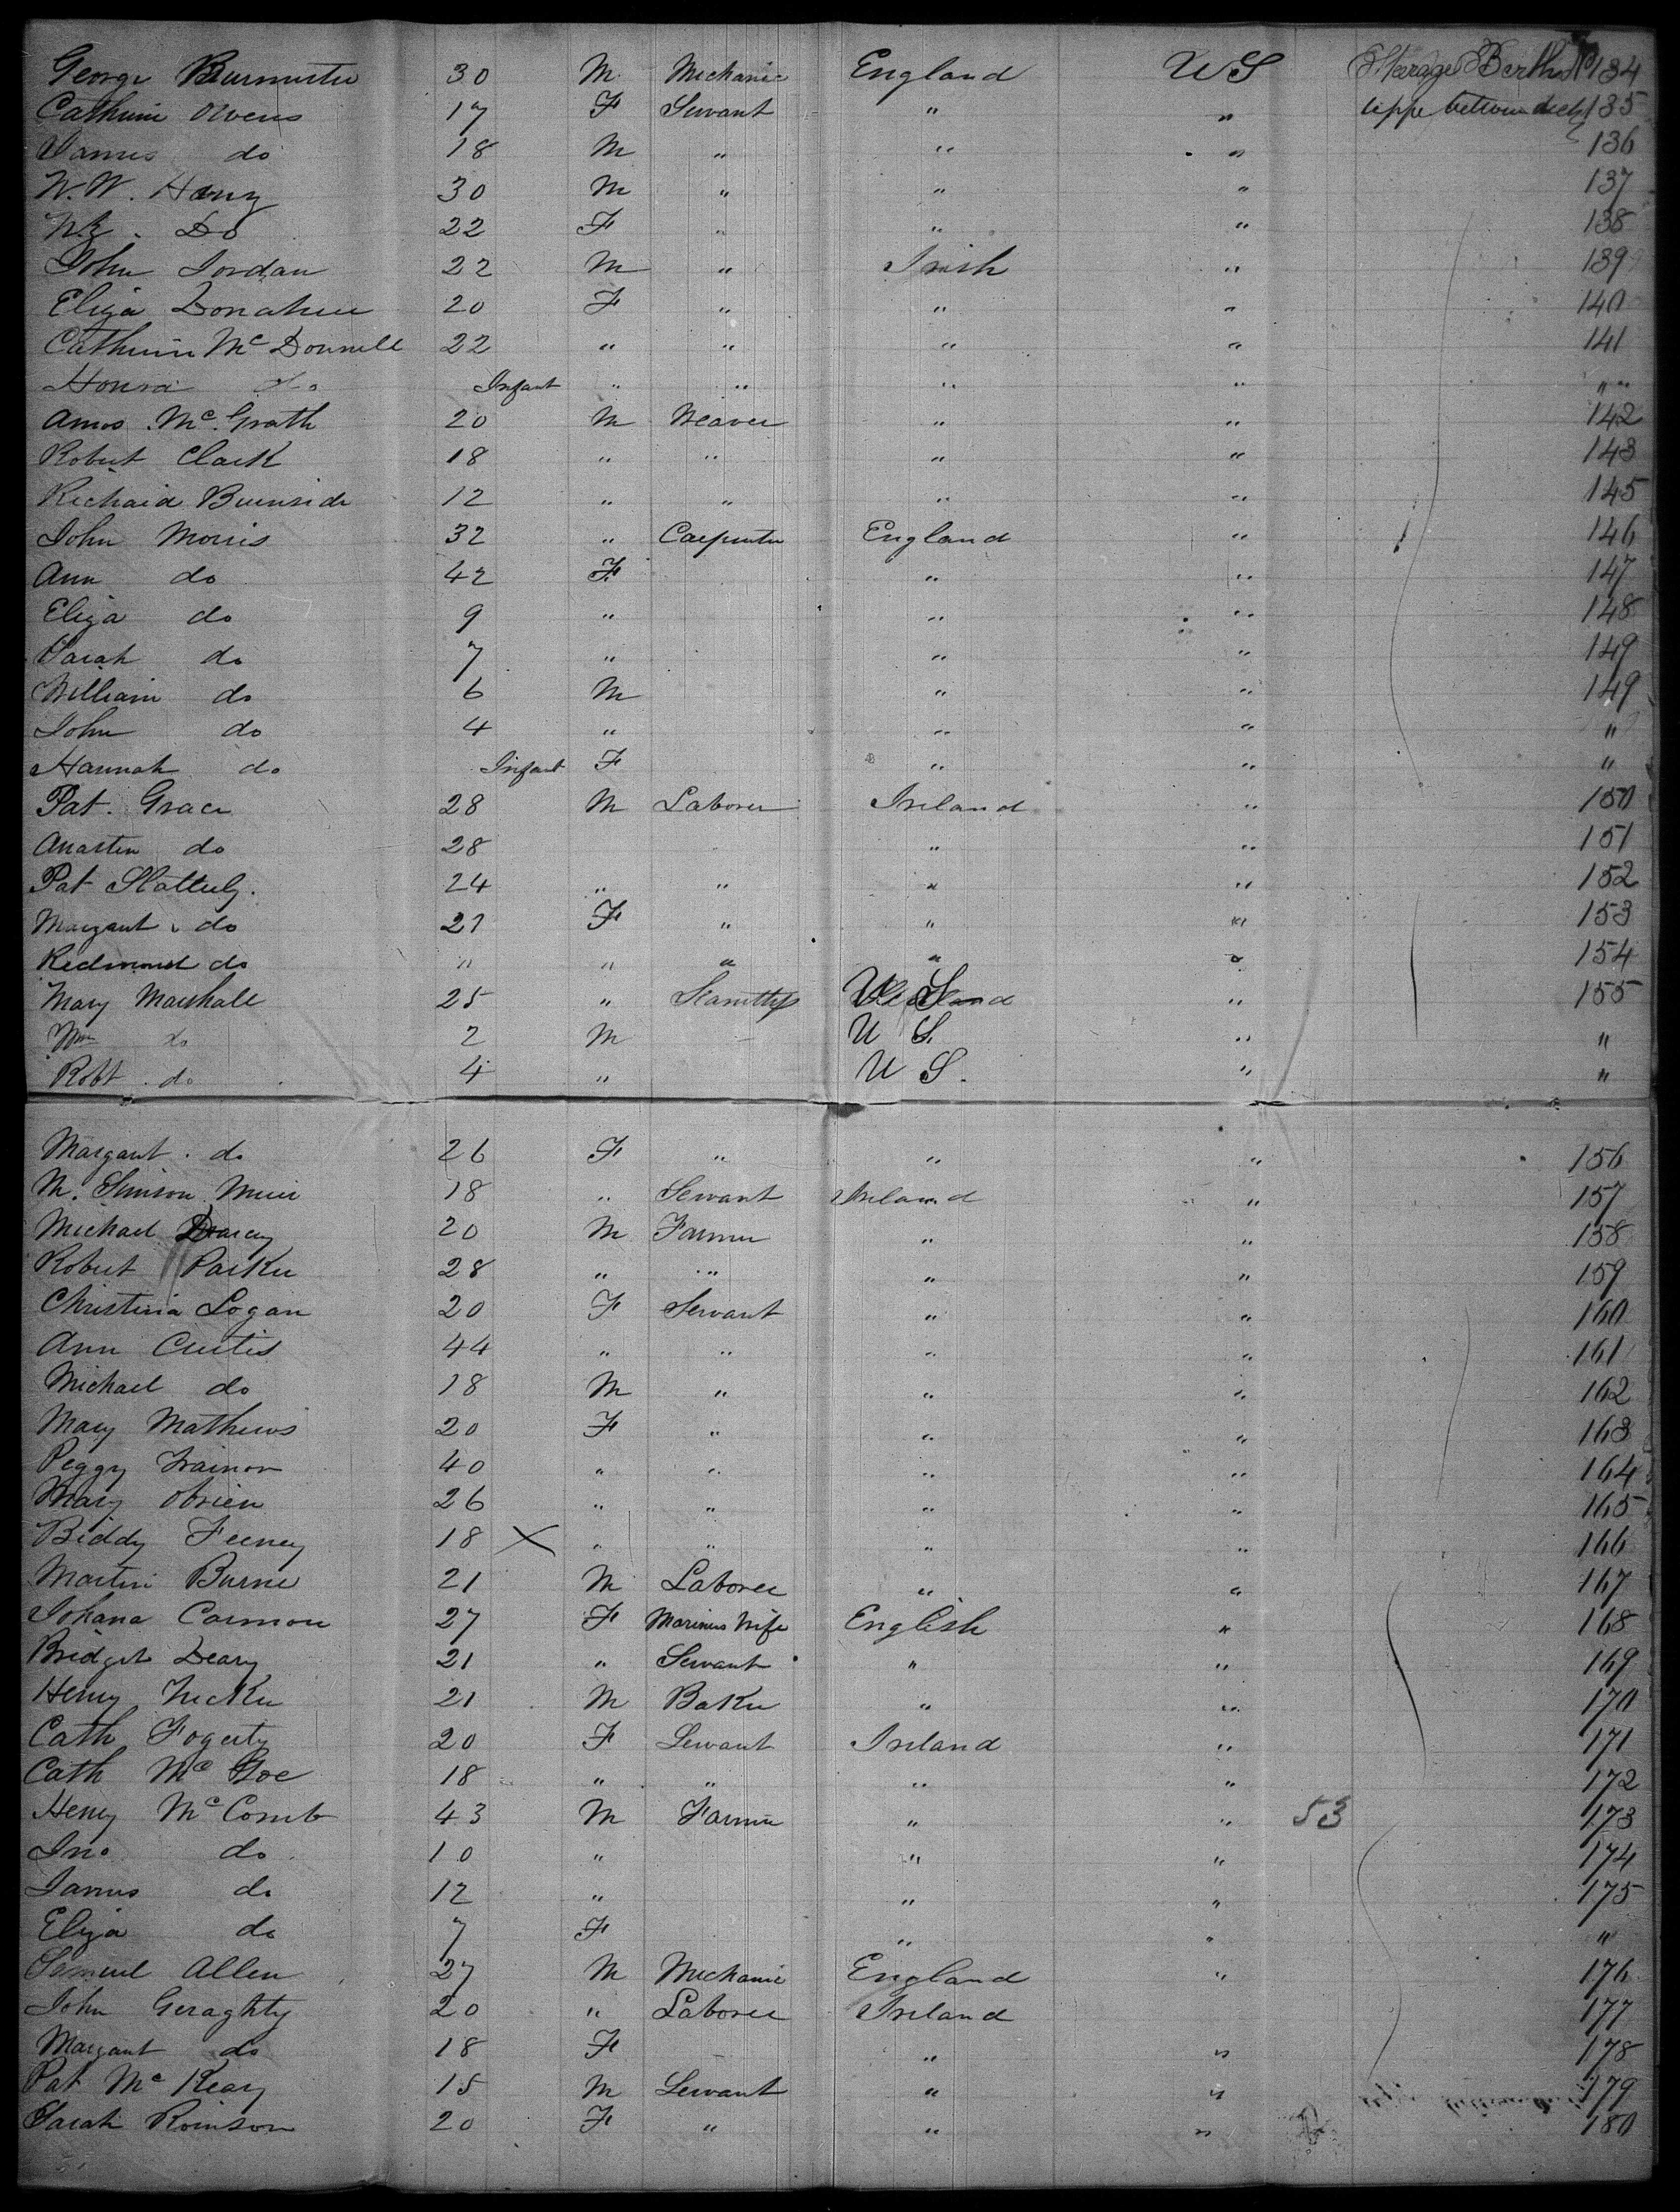 George Burmister 30 M Mechanic England US Stearage Berths No 134
Catherine Owens 17 F Servant " " upper between decks 135
James do 18 M " " " 136
W. W. Henry 30 M " " " 137
Do 22 F " " " 138
John Jordan 22 M " Irish " 139
Eliza Donahue 20 F " " " 140
Catherine Mc Donnell 22 " " " " 141
Honra do Infant " " " " " "
Amos Mc Grath 20 M Weaver " " 142
Robert Clark 18 " " " " 143
Richard Burnside 12 " " " " 145
John Morris 32 " Carpenter England " 146
Ann do 42 F " " 147
Eliza do 9 " " " 148
Sarah do 7 " " " 149
William do 6 M " " 149
John do 4 " " " "
Hannah do Infant F " " "
Pat. Grace 28 M Laborer Ireland " 150
do 28 " " 151
Pat Slattery. 24 " " " " 152
Margaret do 27 F " " " 153
Redmond do " " " " " 154
Mary Marshall 25 " U S " 155
Wm do 2 M U S. " "
Robt. do 4 " U S. " "
Margaret do 26 F " " " 156
M. Simson Muir 18 " Servant Ireland " 157
Michael Darcy 20 M Farmer " " 158
Robert Parker 28 " " " " 159
Christina Logan 20 F Servant " " 160
Ann Curtis 44 " " " " 161
Michael do 18 M " " " 162
Mary Mathews 20 F " " " 163
Peggy Trainor 40 " " " " 164
Mary Obrien 26 " " " " 165
Biddy Feeney 18 X " " " " 166
Martin Burne 21 M Laborer " " 167
Johana Carmon 27 F Mariners Wife English " 168
Bridget Deary 21 " Servant " " 169
Henry Tucker 21 M Baker " " 170
Cath Fogerty 20 F Servant Ireland " 171
Cath Mc Goe 18 " " " " 172
Henry Mc Comb 43 M Farmer " " 53 173
Jno do 10 " " " 174
James do 12 " " " 175
Eliza do 7 F " " "
Samuel Allen 27 M Mechanic England " 176
John Geraghty 20 " Laborer Ireland 177
Margaret do 18 F " " 178
Pat Mc Keary 15 M Servant " " 179
Sarah Roinson 20 F " " " 180